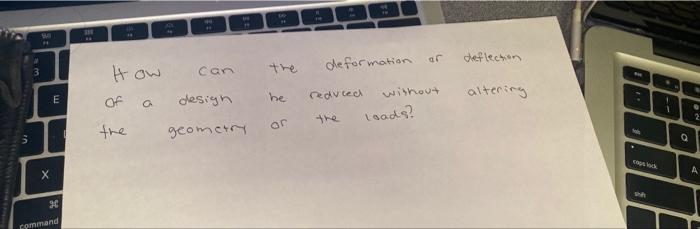 How can the deformation or deflection
of a design be reduced without altering
the geometry or the loads?
3
E
S
X
⌘
command
1
2
tab
Q
caps lock
A
shift